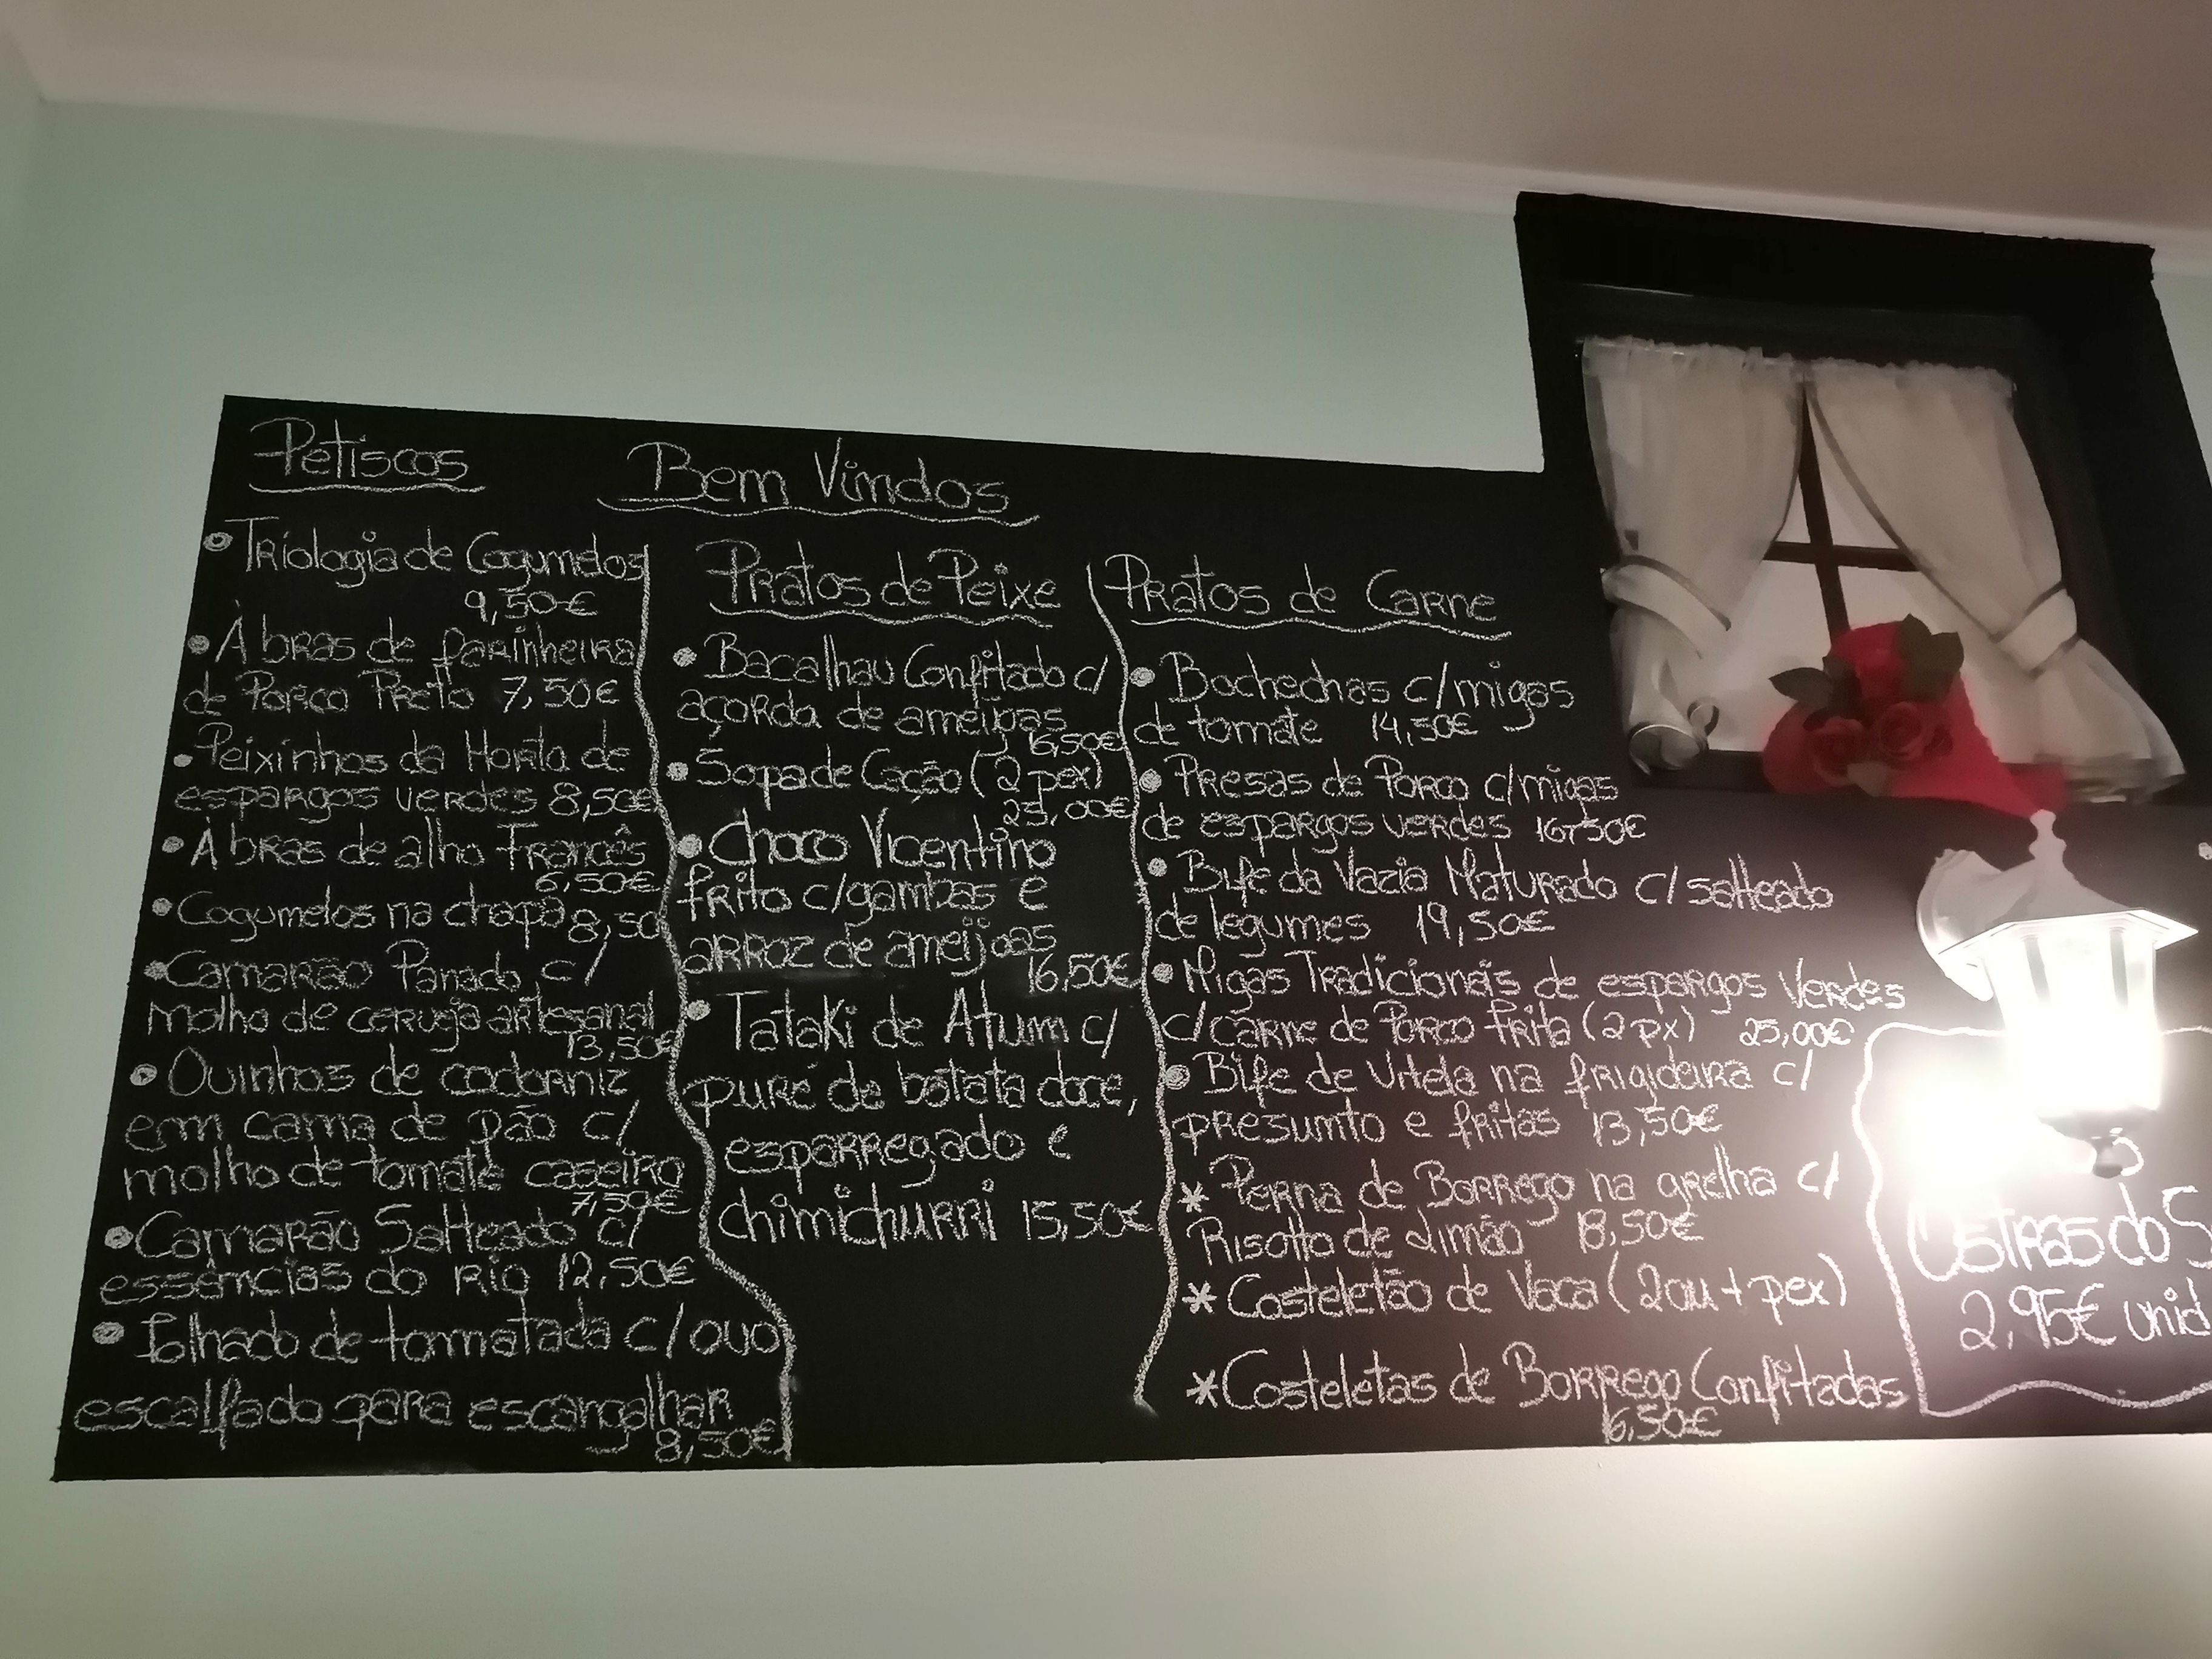 Petiscos
Bem Vindos
• Triologia de Cogumelos
9,50€
• À bras de farinheira
de Porco Preto 7,50€
• Peixinhos da Horta de
espargos verdes 8,50€
• À bras de alho Francês
6,50€
• Cogumelos na chapa 8,50
• Camarão Panado c/
molho de cerveja artesanal
13,50€
• Ouinhos de codorniz
em cama de pão c/
molho de tomate caseiro
7,50€
• Camarão Salteado c/
essências do rio 12,50€
• Folhado de tomatada c/ovo
escalfado para escangalhar
8,50€
Pratos de Peixe
• Bacalhau Confitado c/
açorda de ameijoas
16,50€
• Sopa de Cação (2 pex)
25,00€
• Choco Vicentino
frito c/gambas e
arroz de ameijoas
16,50€
• Tataki de Atum c/
puré de batata doce,
esparregado e
chimichurri 15,50€
Pratos de Carne
• Bochechas c/migas
de tomate 14,50€
• Presas de Porco c/migas
de espargos verdes 16,50€
• Bife da Vazia Maturado c/salteado
de legumes 19,50€
• Migas Tradicionais de espargos Verdes
c/carne de Porco frita (2 px) 25,00€
• Bife de Vitela na frigideira c/
presunto e fritas 13,50€
* Perna de Borrego na grelha c/
Risotto de Limão 18,50€
* Costeletão de Vaca (2 ou + pex)
* Costeletas de Borrego Confitadas
16,50€
Ostras do S
2,95€ unid